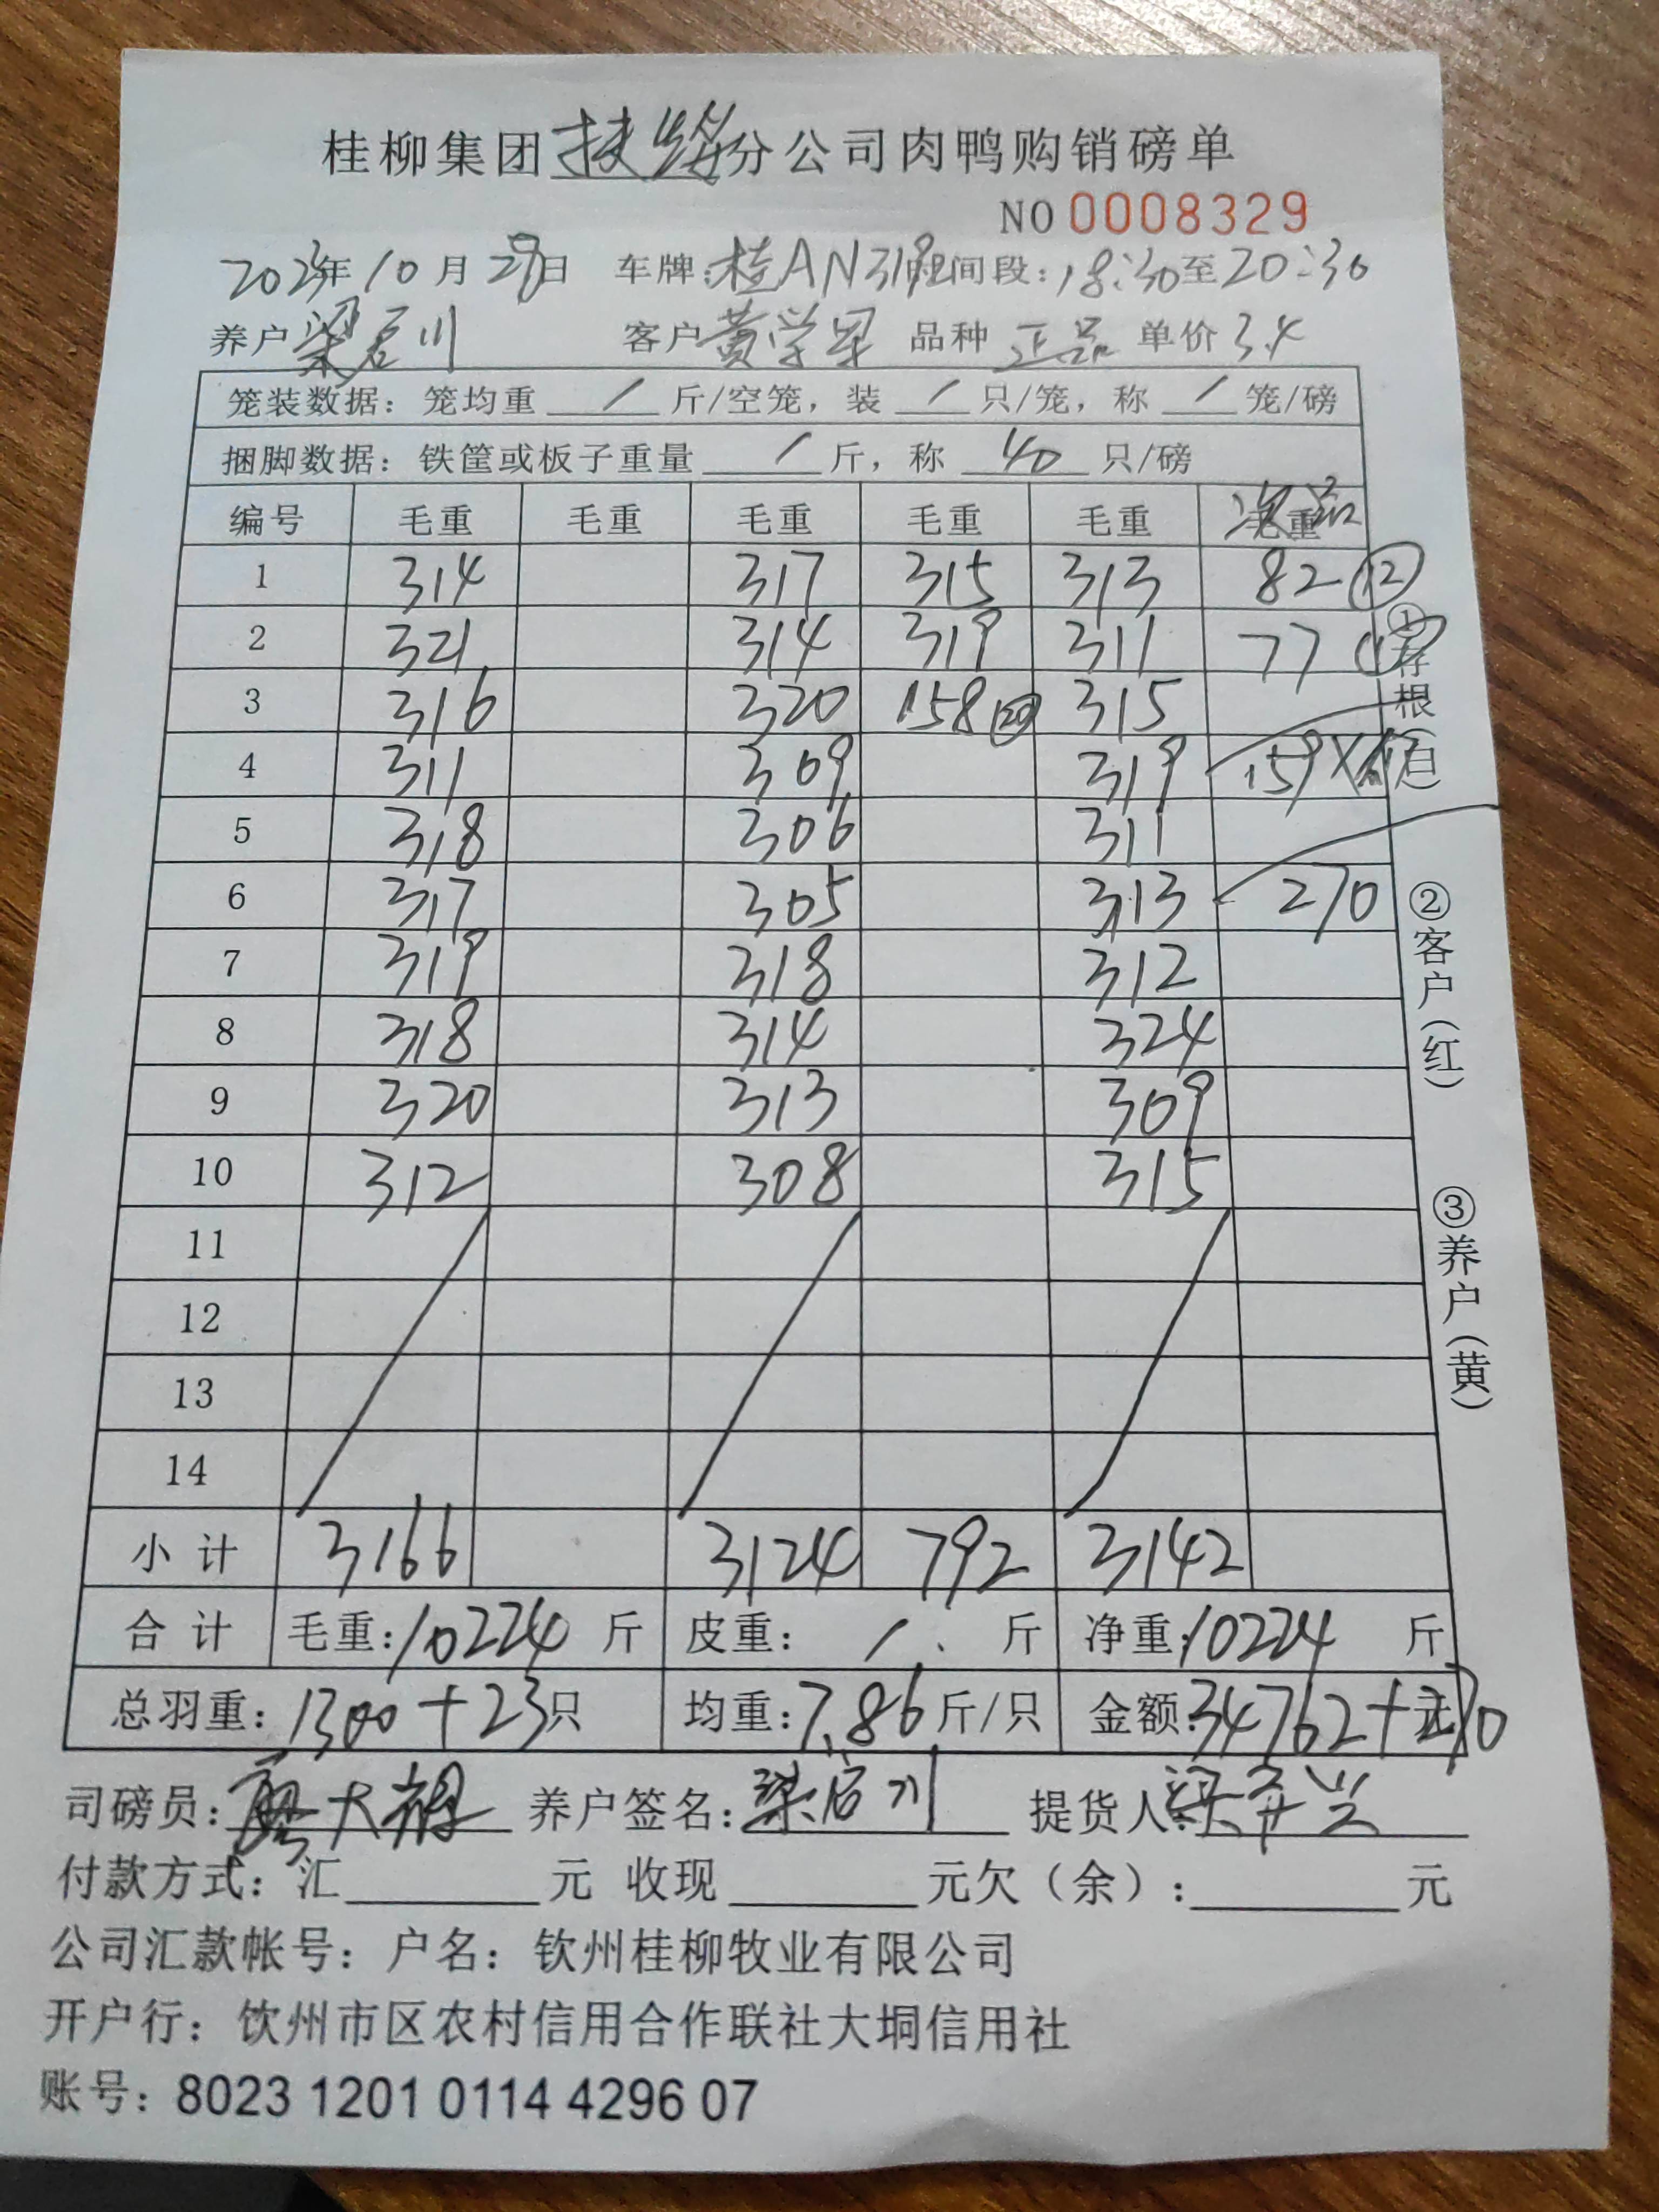 桂柳集团扶绥分公司肉鸭购销磅单
NO 0008329
2023年10月29日 车牌:桂AN319 时间段:18:30至20:30
养户 梁启川 客户 黄学军 品种 正品 单价 3.4
笼装数据: 笼均重 / 斤/空笼, 装 / 只/笼, 称 / 笼/磅
捆脚数据: 铁筐或板子重量 / 斤, 称 40 只/磅
编号 毛重 毛重 毛重 毛重 毛重 毛重 次品
1 314 317 315 313 82 (12)
2 321 314 319 311 77
3 316 320 158 (20) 315
4 311 309 319 159×
5 318 306 311
6 317 305 313 270
7 319 318 312
8 318 314 324
9 320 313 309
10 312 308 315
11
12
13
14
小计 3166 3124 792 3142
合计 毛重:10224 斤 皮重: / 斤 净重:10224 斤
总羽重: 1300+23只 均重:7.86斤/只 金额:34762+270元
司磅员: 养户签名:梁启川 提货人:
付款方式: 汇 元 收现 元欠(余): 元
公司汇款帐号: 户名: 钦州桂柳牧业有限公司
开户行: 钦州市区农村信用合作联社大垌信用社
账号: 8023 1201 0114 4296 07
①存根(白)
②客户(红)
③养户(黄)